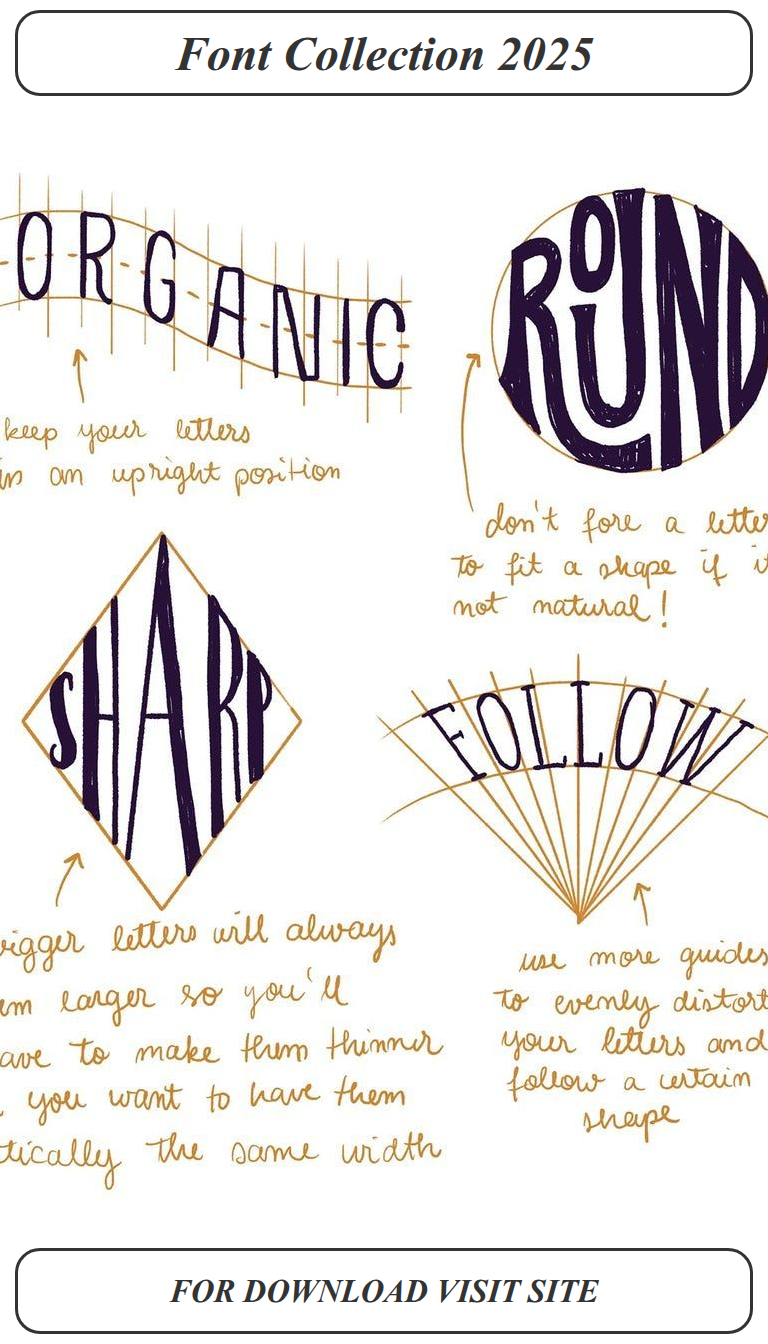 Font Collection 2025
ORGANIC
keep your letters
in an upright position
ROUND
don't fore a letter
to fit a shape if it
not natural!
SHARP
bigger letters will always
larger so you'll
to make them thinner
you want to have them
the same width
FOLLOW
use more guides
to evenly distort
your letters and
follow a certain
shape
FOR DOWNLOAD VISIT SITE